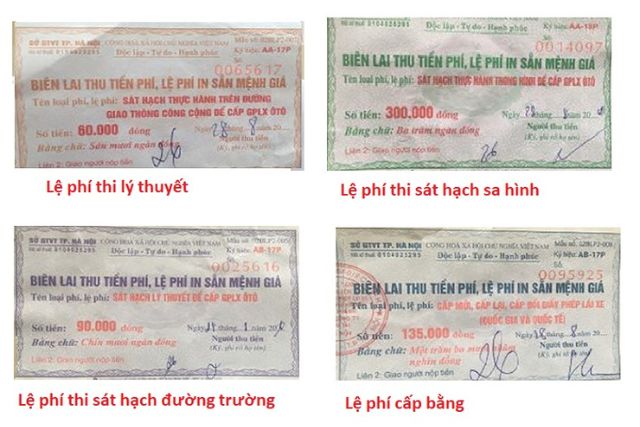 SỞ GTVT TP. HÀ NỘI
CỘNG HOÀ XÃ HỘI CHỦ NGHĨA VIỆT NAM
Độc lập - Tự do - Hạnh phúc
Ký hiệu: AA-17P
0065617
BIÊN LAI THU TIỀN PHÍ, LỆ PHÍ IN SẴN MỆNH GIÁ
Tên loại phí, lệ phí: SÁT HẠCH THỰC HÀNH TRÊN ĐƯỜNG
GIAO THÔNG CÔNG CỘNG ĐỂ CẤP GPLX ÔTÔ
Số tiền: 60.000 đồng
Ngày 28 tháng 8 năm 20
Bằng chữ: Sáu mươi ngàn đồng
Người thu tiền
(Ký, ghi rõ họ tên)
Liên 2: Giao người nộp tiền
Lệ phí thi lý thuyết
Độc lập - Tự do - Hạnh phúc
Ký hiệu: AA-18P
0014097
BIÊN LAI THU TIỀN PHÍ, LỆ PHÍ IN SẴN MỆNH GIÁ
Tên loại phí, lệ phí: SÁT HẠCH THỰC HÀNH TRONG HÌNH ĐỂ CẤP GPLX ÔTÔ
Số tiền: 300.000 đồng
Ngày 28 tháng 8 năm 20
Bằng chữ: Ba trăm ngàn đồng
Người thu tiền
(Ký, ghi rõ họ tên)
Liên 2: Giao người nộp tiền
Lệ phí thi sát hạch sa hình
SỞ GTVT TP. HÀ NỘI
CỘNG HOÀ XÃ HỘI CHỦ NGHĨA VIỆT NAM
Độc lập - Tự do - Hạnh phúc
Ký hiệu: AB-17P
0025616
BIÊN LAI THU TIỀN PHÍ, LỆ PHÍ IN SẴN MỆNH GIÁ
Tên loại phí, lệ phí: SÁT HẠCH LÝ THUYẾT ĐỂ CẤP GPLX ÔTÔ
Số tiền: 90.000 đồng
Bằng chữ: Chín mươi ngàn đồng
Người thu tiền
(Ký, ghi rõ họ tên)
Liên 2: Giao người nộp tiền
Lệ phí thi sát hạch đường trường
SỞ GTVT TP. HÀ NỘI
CỘNG HOÀ XÃ HỘI CHỦ NGHĨA VIỆT NAM
Độc lập - Tự do - Hạnh phúc
Ký hiệu: AB-17P
0095925
BIÊN LAI THU TIỀN PHÍ, LỆ PHÍ IN SẴN MỆNH GIÁ
Tên loại phí, lệ phí: CẤP MỚI, CẤP LẠI, CẤP ĐỔI GIẤY PHÉP LÁI XE
(QUỐC GIA VÀ QUỐC TẾ)
Số tiền: 135.000 đồng
Bằng chữ: Một trăm ba mươi năm
nghìn đồng
Người thu tiền
(Ký, ghi rõ họ tên)
Liên 2: Giao người nộp tiền
Lệ phí cấp bằng